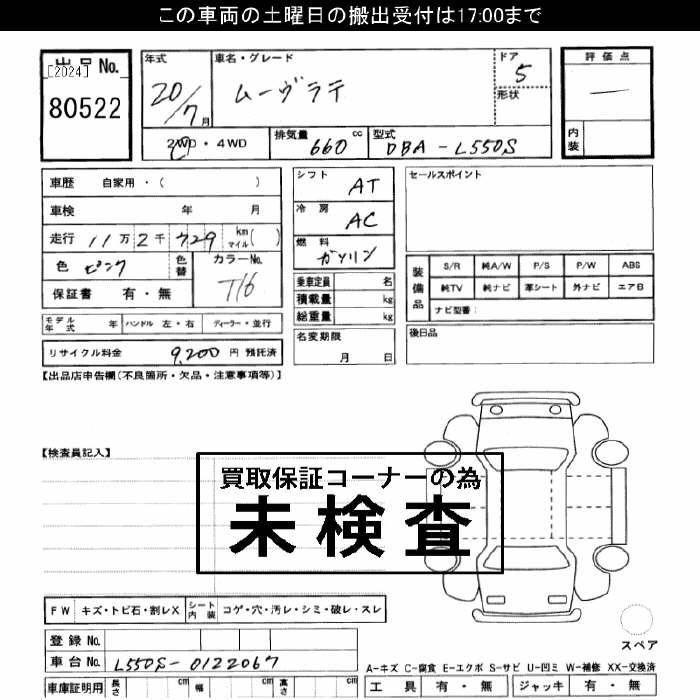 この車両の土曜日の搬出受付は17:00まで
出品No.
[2024]
80522
年式
20/7月
車名・グレード
ムーヴラテ
ドア
5
形状
評価点
—
内装
2WD・4WD
排気量 660 cc
型式 DBA-L550S
車歴 自家用・( )
車検 年 月
走行 11万2千729 km マイル( )
色 ピンク
色替
カラーNo.
T16
保証書 有・無
モデル年式 年 ハンドル 左・右 ディーラー・並行
リサイクル料金 9,200 円 預託済
シフト AT
冷房 AC
燃料 ガソリン
乗車定員 名
積載量 kg
総重量 kg
名変期限
月 日
セールスポイント
装備品
S/R 純A/W P/S P/W ABS
純TV 純ナビ 革シート 外ナビ エアB
ナビ型番:
後日品
【出品店申告欄(不良箇所・欠品・注意事項等)】
【検査員記入】
買取保証コーナーの為
未検査
FW キズ・トビ石・割レX シート内装 コゲ・穴・汚レ・シミ・破レ・スレ
登録No.
車台No. L550S-0122067
車庫証明用 長さ cm 幅 cm 高さ cm
スペア
A-キズ C-腐食 E-エクボ S-サビ U-凹ミ W-補修 XX-交換済
工具 有・無 ジャッキ 有・無